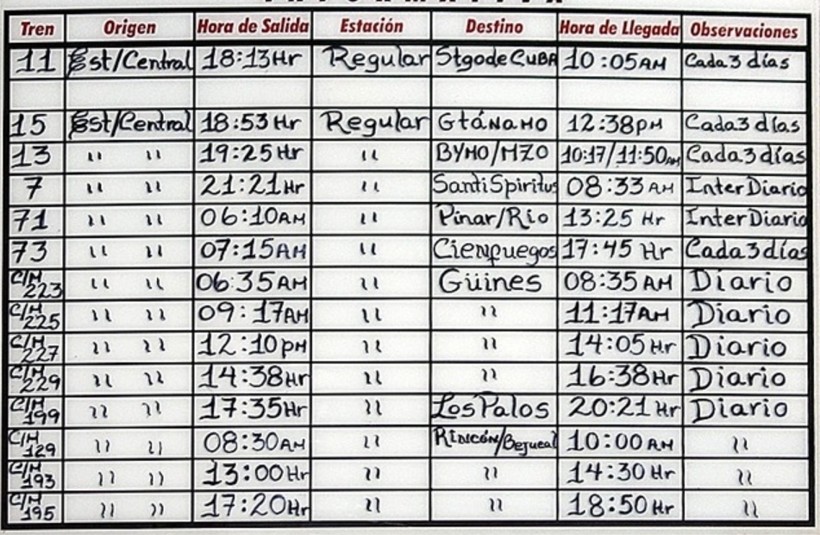 Tren Origen Hora de Salida Estación Destino Hora de Llegada Observaciones
11 Est/Central 18:13Hr Regular StgodeCUBA 10:05AM Cada 3 días
15 Est/Central 18:53 Hr Regular GtáNAMO 12:38pM Cada3 días
13 " " 19:25 Hr " BYMO/MZO 10:17/11:50AM Cada 3 días
7 " " 21:21Hr " SantiSpiritus 08:33 AM InterDiario
71 " " 06:10AM " Pinar/Rio 13:25 Hr InterDiario
73 " " 07:15AM " Cienfuegos 17:45 Hr Cada3días
C/H 223 " " 06:35AM " Güines 08:35 AM Diario
C/H 225 " " 09:17AM " " 11:17AM Diario
C/H 227 " " 12:10pM " " 14:05 Hr Diario
C/H 229 " " 14:38Hr " " 16:38Hr Diario
C/H 199 " " 17:35Hr " LosPalos 20:21 Hr Diario
C/H 129 " " 08:30AM " Rincón/Bejucal 10:00AM "
C/H 193 " " 13:00Hr " " 14:30 Hr "
C/H 195 " " 17:20Hr " " 18:50 Hr "